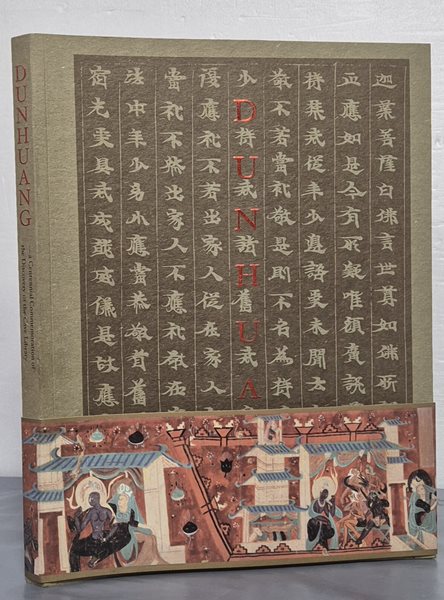 DUNHUANG
—a Centennial Commemoration of
the Discovery of the Cave Library
DUNHUA
迦葉菩薩白佛言世尊如佛所
立應如是今有所疑唯願廣說
持禁戒從年少邊諮受未聞云
敬不若當礼敬是則不名為持
少持戒諸舊戒
復應礼不若出家人從在家
當礼不然出家人不應礼敬在
法中年少幼小應當恭敬耆舊
宿先受具戒成就威儀是故應